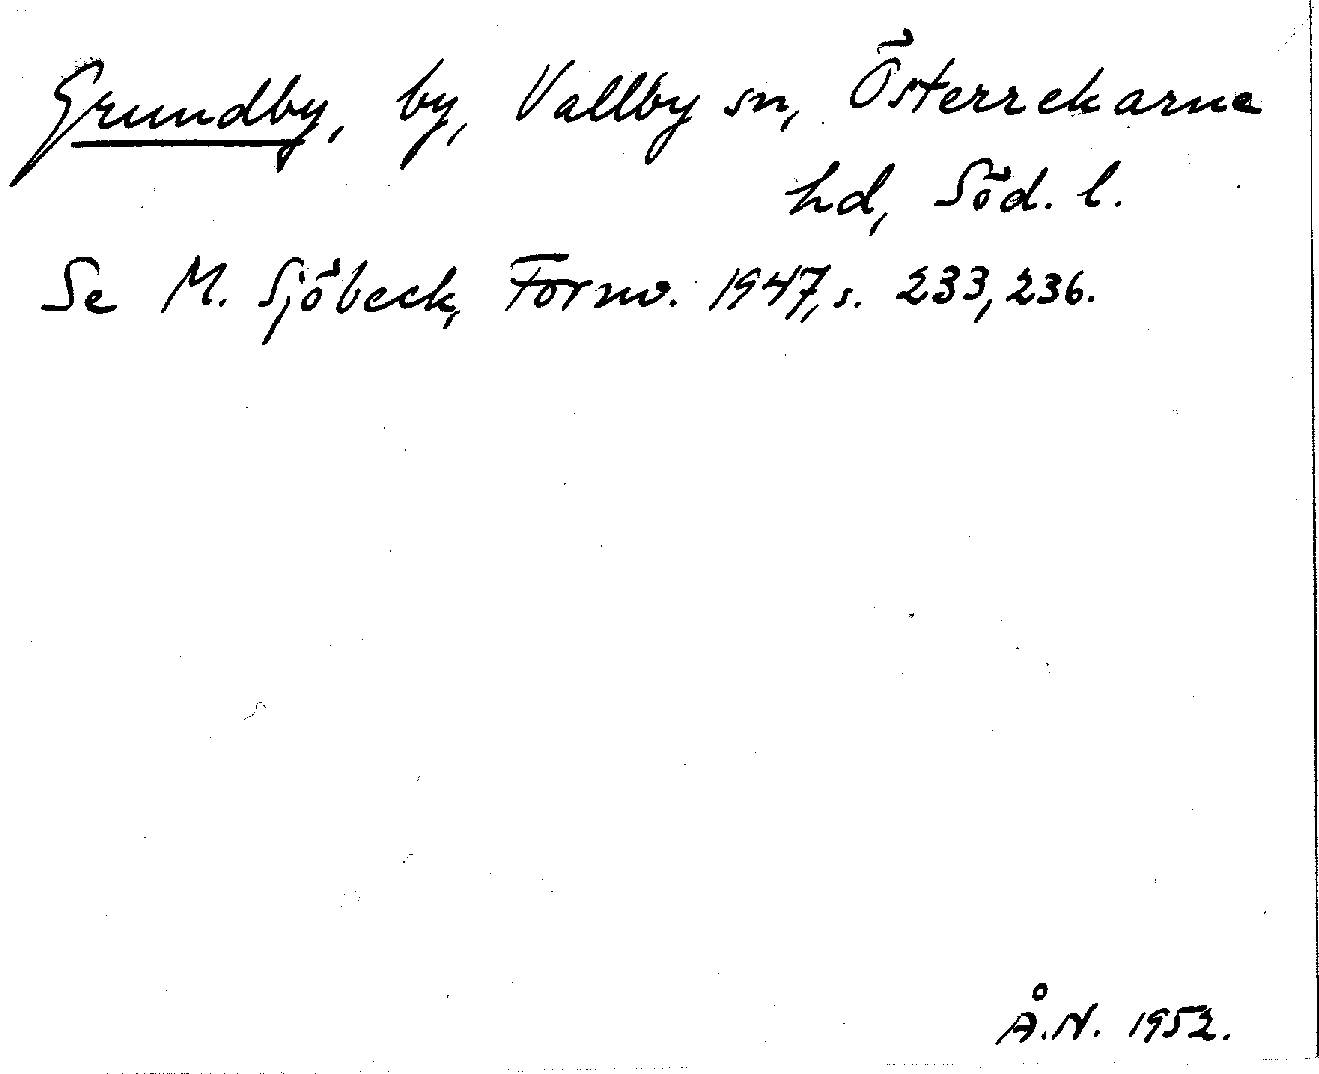 Grundby, by, Vallby sn, Österrekarne
hd, Söd. l.
Se M. Sjöbeck, Fornv. 1947, s. 233, 236.
Å.N. 1952.